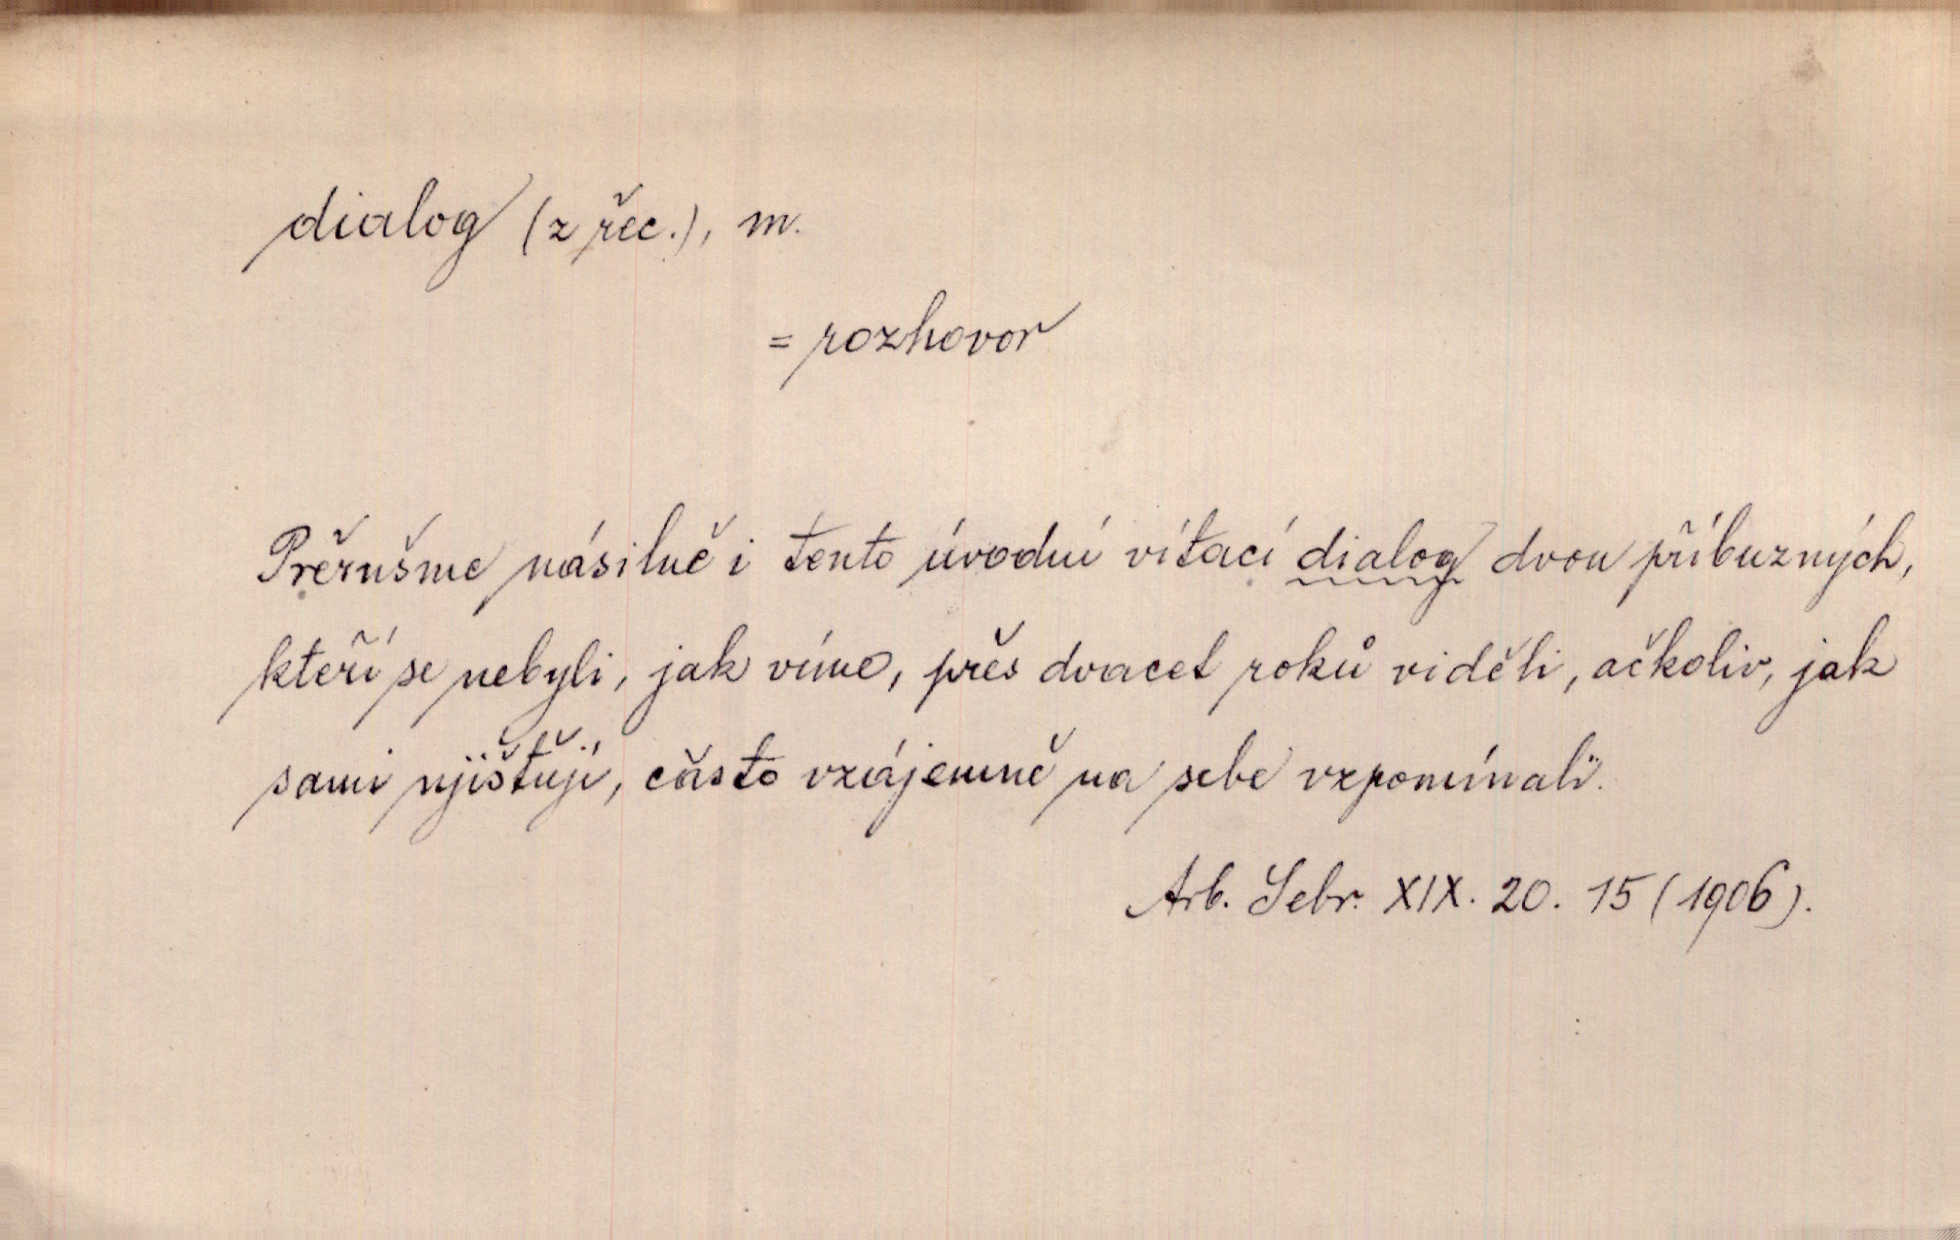 dialog (z řec.), m.
= rozhovor
Přerušme násilně i tento úvodní vítací dialog dvou příbuzných,
kteří se nebyli, jak víme, přes dvacet roků viděli, ačkoliv, jak
sami ujišťují, často vzájemně na sebe vzpomínali.
Arb. Sebr. XIX. 20. 15 (1906).